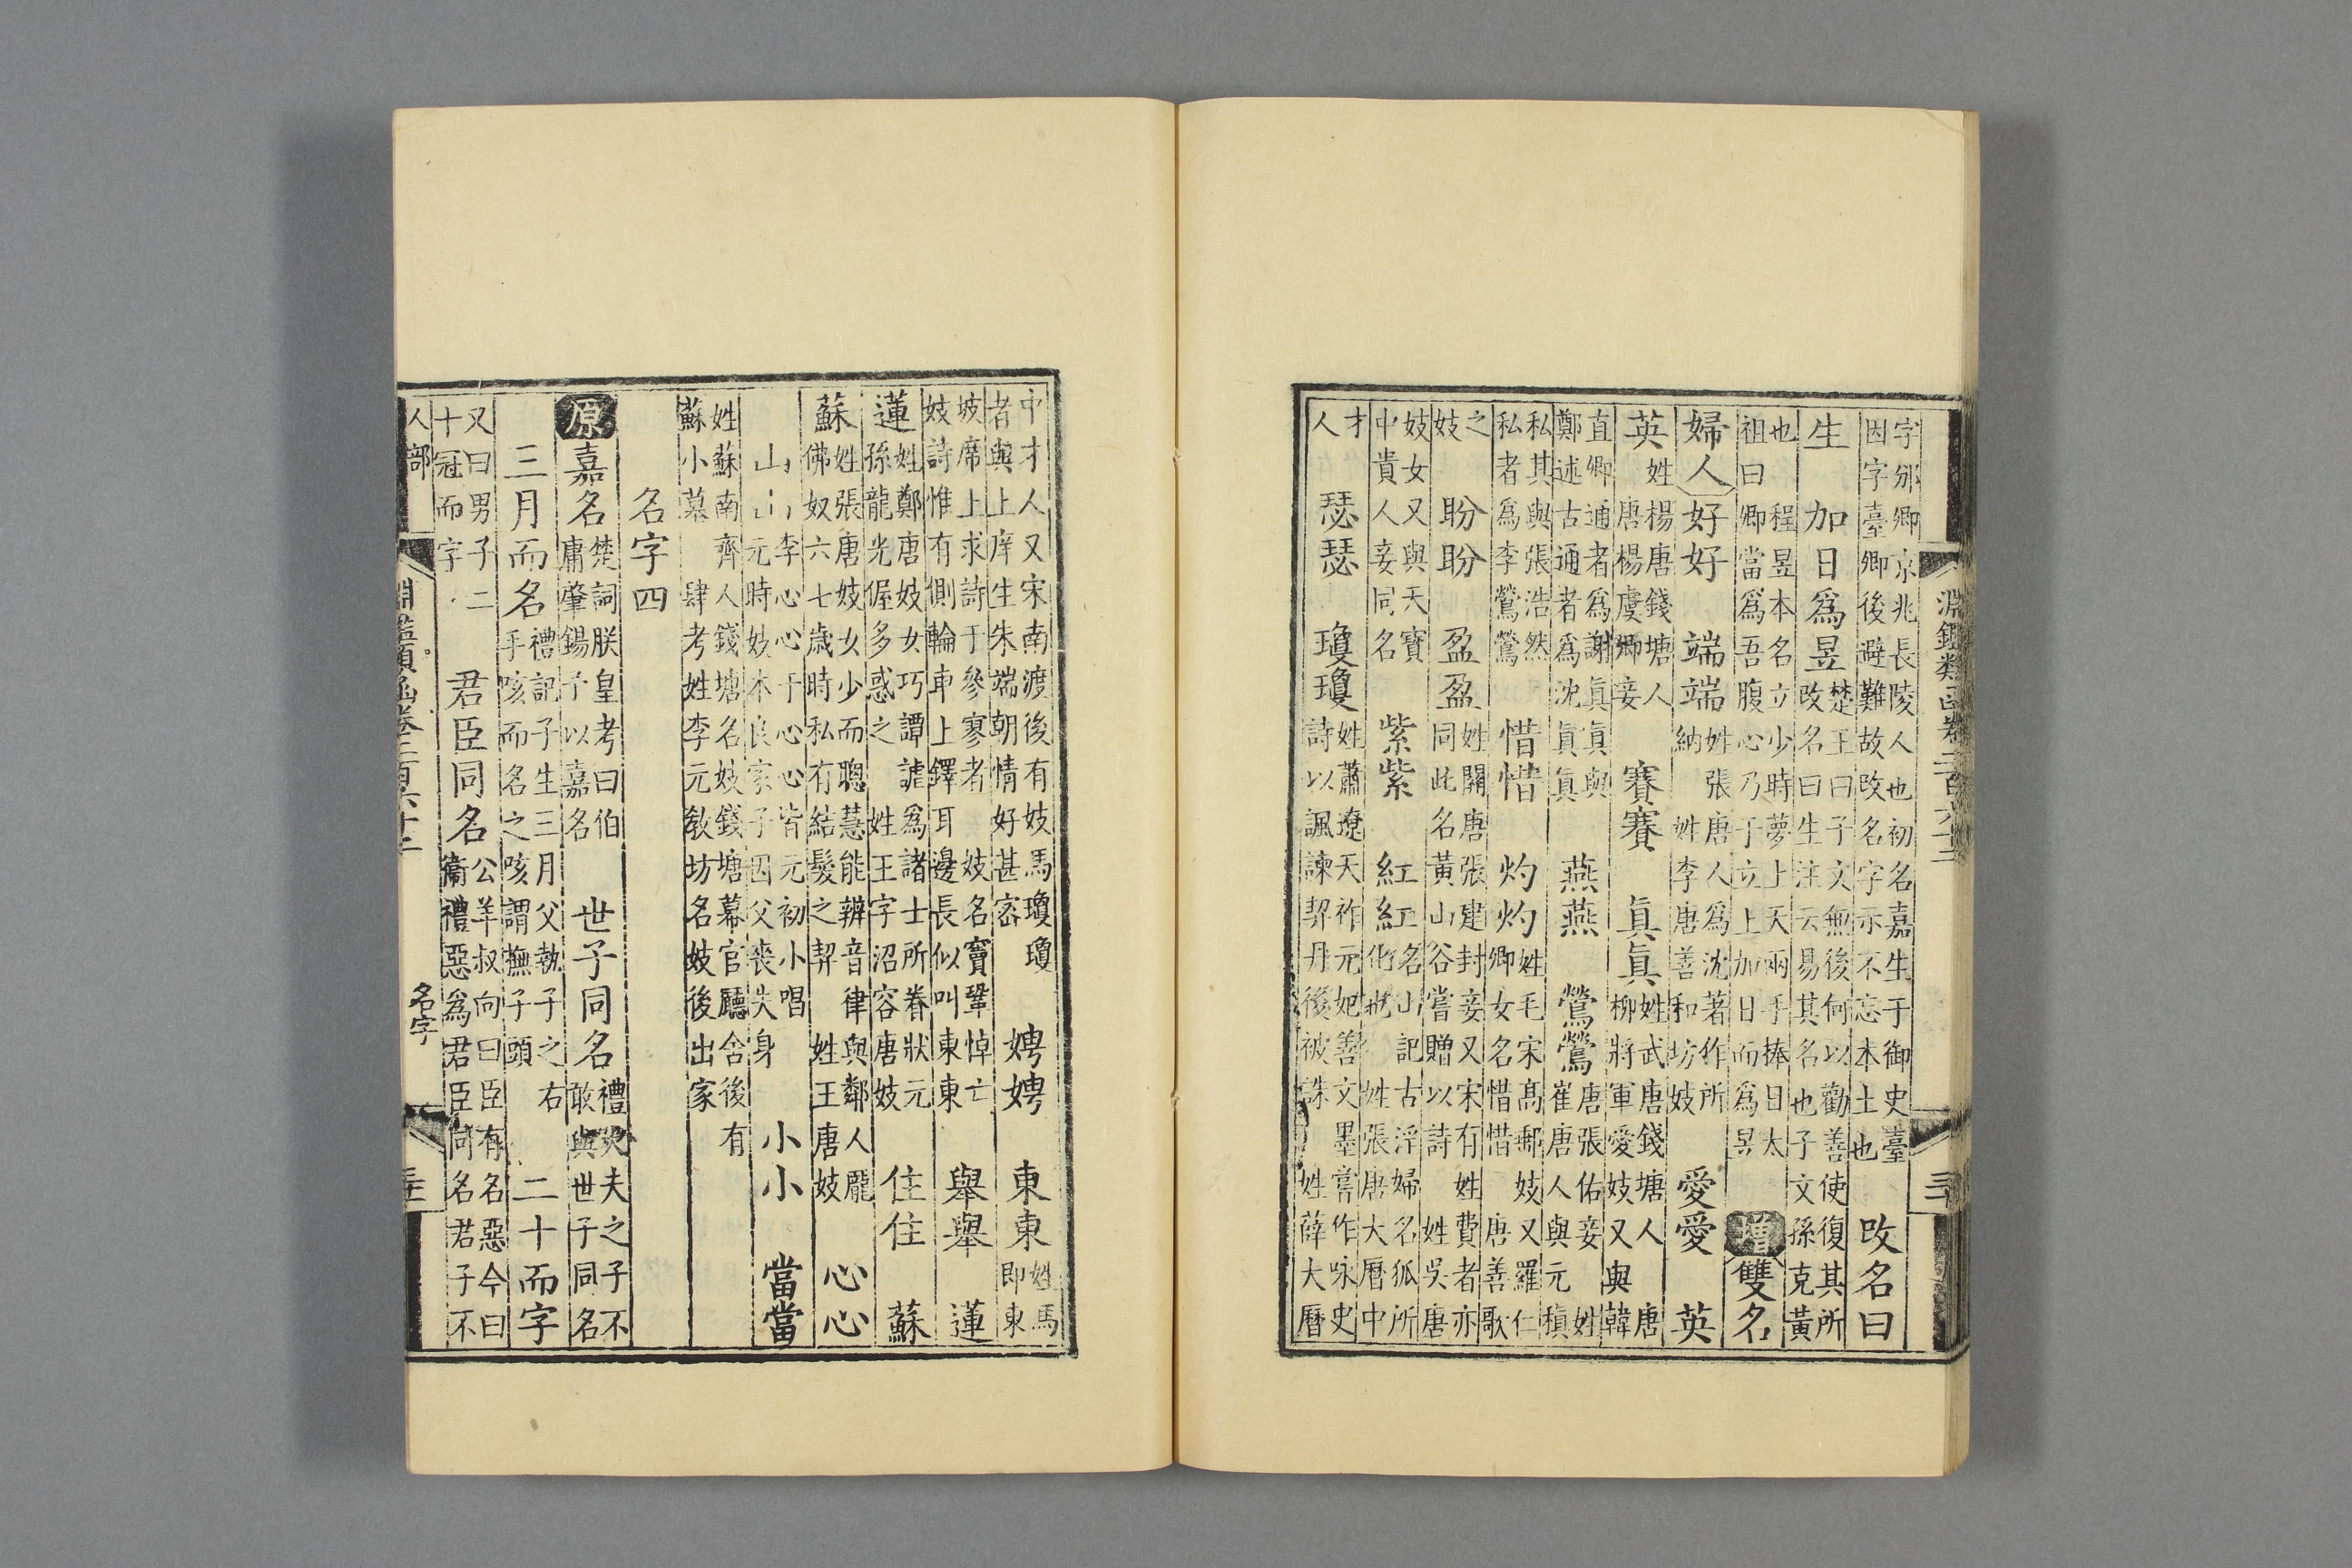 淵鑑類函卷二百六十二
字邠卿京兆長陵人也初名嘉生于御史臺
因字臺卿後避難故改名字示不忘本土也 改名曰
生 加日爲昱 楚王曰子文無後何以勸善使復其所
改名曰生注云易其名也子文孫克黃
也程昱本名立少時夢上天兩手捧日太
祖曰卿當爲吾腹心乃于立上加日而爲昱 增 雙名
婦人 好好 端端 姓張唐人爲沈著作所
納 姓李唐善和坊妓 愛愛 英
英 姓楊唐錢塘人
唐楊虞卿妾 賽賽 眞眞 姓武唐錢塘人 唐
柳將軍愛妓又與韓
直卿通者爲謝眞眞與
鄭述古通者爲沈眞眞 燕燕 鶯鶯 唐張佑妾 姓
崔唐人與元稹
私其與張浩然
私者爲李鶯鶯 惜惜 灼灼 姓毛宋高郵妓又羅仁
卿女名惜惜 唐善歌
之
妓 盼盼 盈盈 姓關唐張建封妾又宋有姓費者亦
同此名黃山谷嘗贈以詩 姓吳唐
妓女又與天寶
中貴人妾同名 紫紫 紅紅 名山記古浮婦名狐所
化也 姓張唐大曆中
才
人 瑟瑟 瓊瓊 姓蕭遼天祚元妃善文墨嘗作咏史
詩以諷諫契丹後被誅 姓薛大曆
中才人又宋南渡後有妓馬瓊瓊
者與上庠生朱端朝情好甚密 娉娉 東東 姓馬
即東
坡席上求詩于參寥者 妓名竇鞏悼亡
妓詩惟有側輪車上鐸耳邊長似叫東東 舉舉 蓮
蓮 姓鄭唐妓女巧譚謔爲諸士所眷狀元
孫龍光偓多惑之 姓王字沼容唐妓 住住 蘇
蘇 姓張唐妓女少而聰慧能辨音律與鄰人龐
佛奴六七歲時私有結髮之契 姓王唐妓 心心
山山 李心心于心心皆元初小唱
元時妓本良家子因父喪失身 小小 當當
姓蘇南齊人錢塘名妓錢塘幕官廳舍後有
蘇小墓 肆考姓李元敎坊名妓後出家
名字四
原 嘉名 楚詞朕皇考曰伯
庸肇錫予以嘉名 世子同名 禮大夫之子不
敢與世子同名
三月而名 禮記子生三月父執子之右
手咳而名之咳謂撫子頭 二十而字
又曰男子二
十冠而字 君臣同名 公羊叔向曰臣有名惡今曰
衞禮惡爲君臣同名君子不
人部
淵鑑類函卷二百六十二
名字